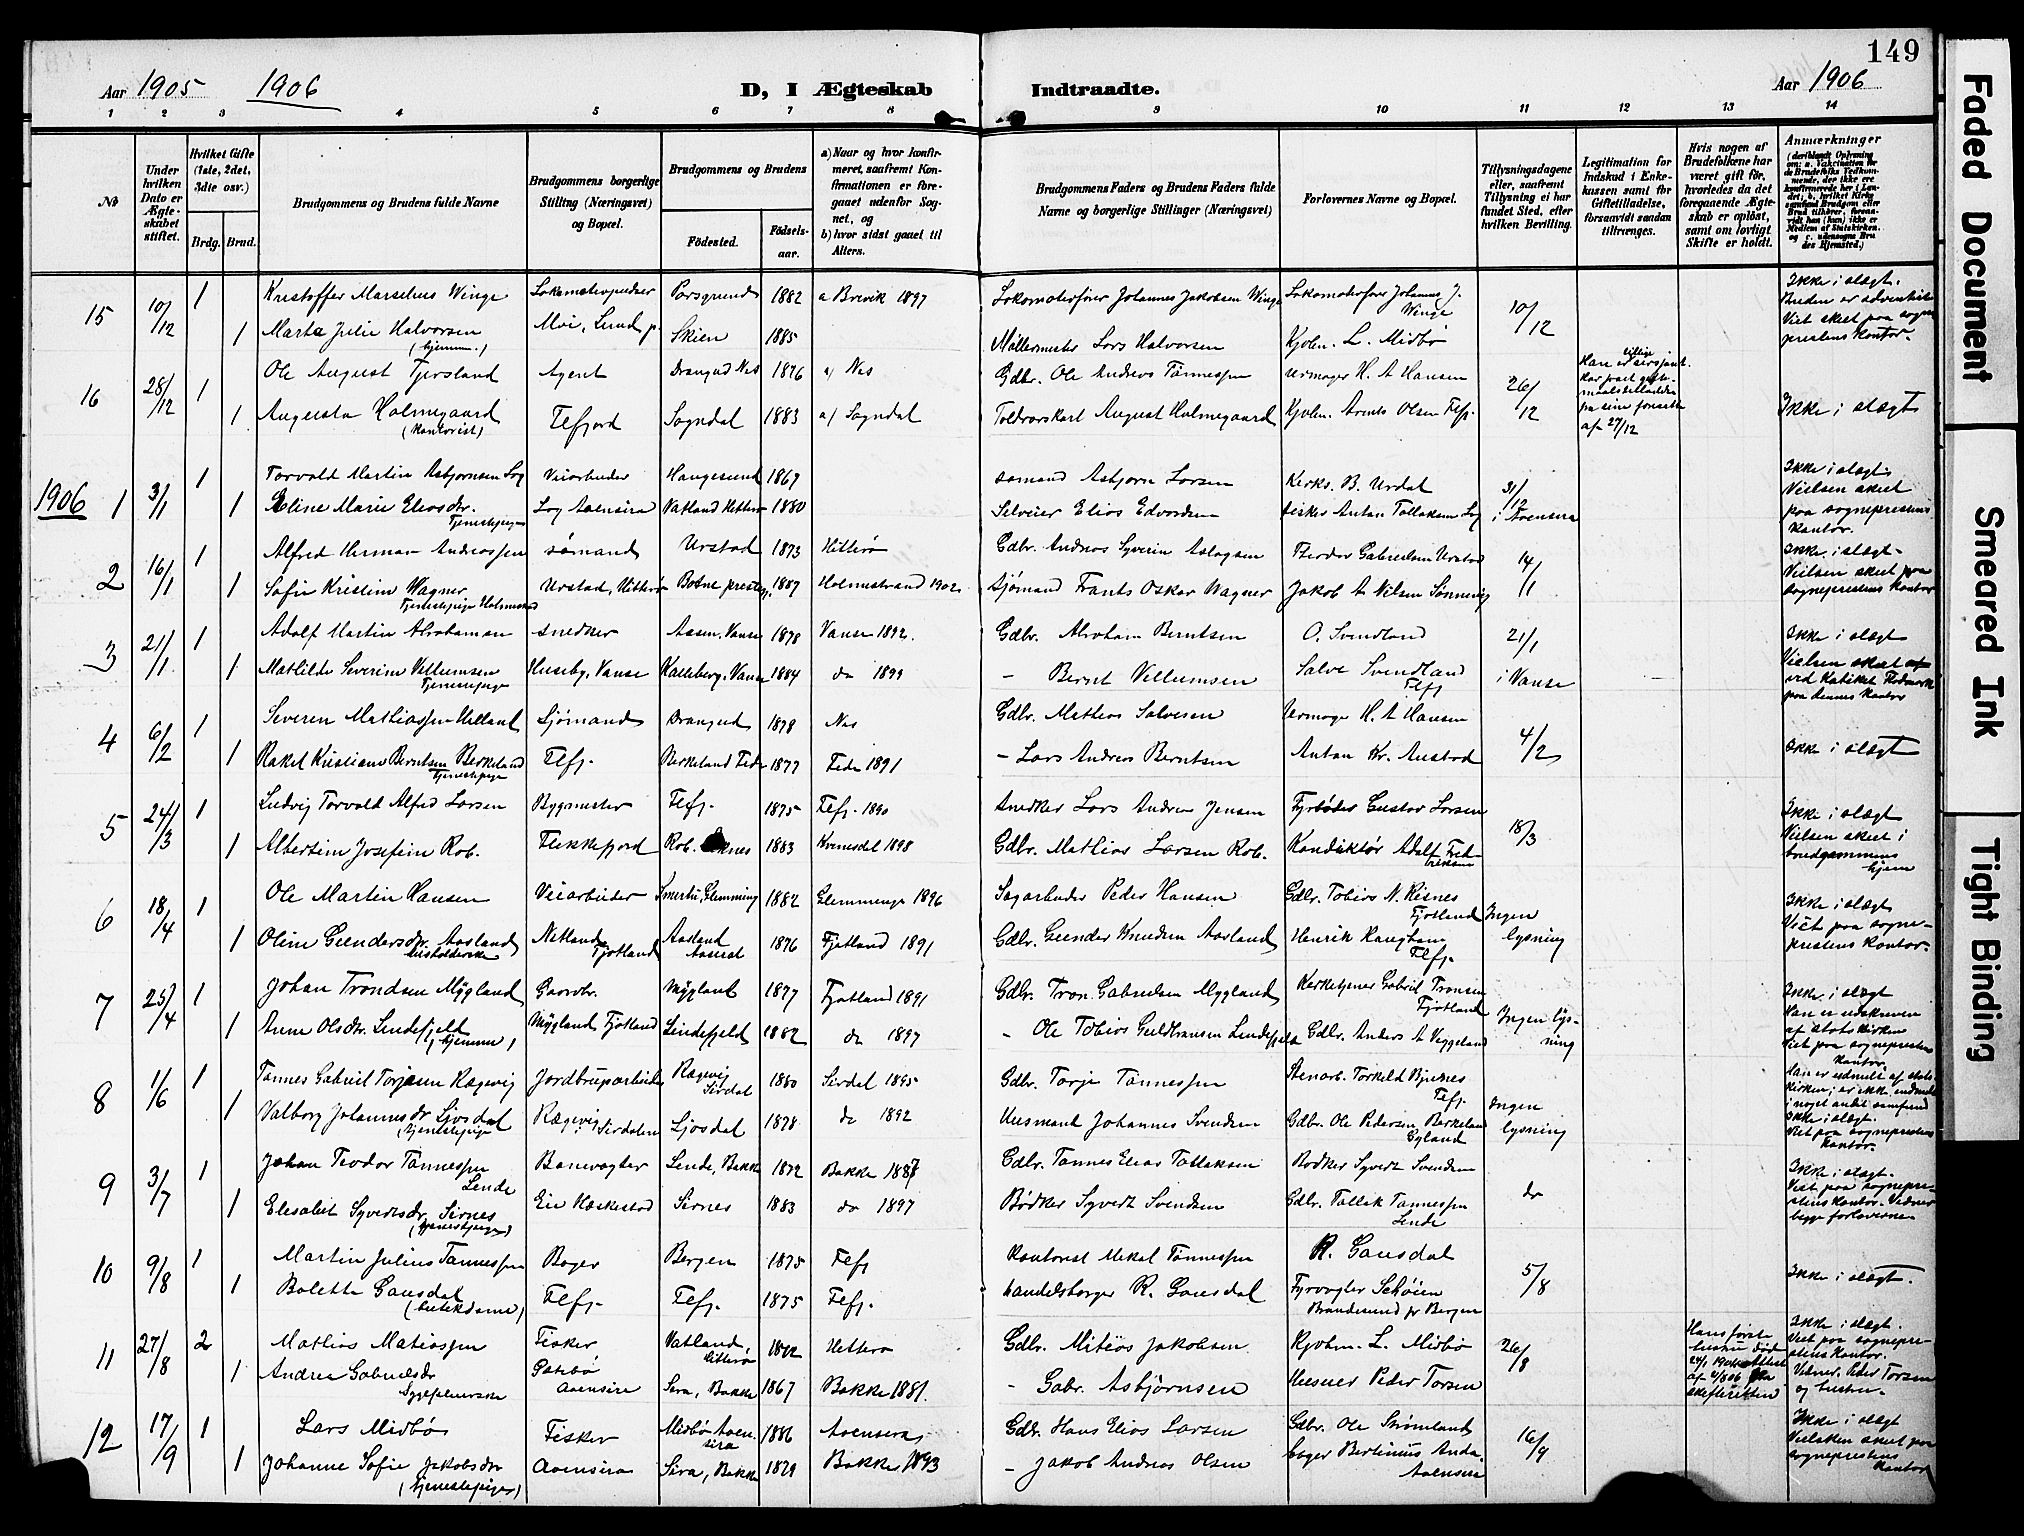 149
Aar 1905 1906 D, I Ægteskab Indtraadte. Aar 1906
1 2 3 4 5 6 7 8 9 10 11 12 13 14
No
Under hvilken Dato er Ægteskabet stiftet.
Hvilket Gifte (1ste, 2det, 3die osv.)
Brdg. Brud.
Brudgommens og Brudens fulde Navne
Brudgommens borgerlige Stilling (Næringsvei) og Bopæl.
Brudgommens og Brudens
Fødested. Fødselsaar.
a) Naar og hvor konfirmeret, saafremt Konfirmationen er foregaaet udenfor Sognet, og
b) hvor sidst gaaet til Alters.
Brudgommens Faders og Brudens Faders fulde Navne og borgerlige Stillinger (Næringsvei)
Forlovernes Navne og Bopæl.
Tillysningsdagene eller, saafremt Tillysning ei har fundet Sted, efter hvilken Bevilling.
Legitimation for Indskud i Enkekassen samt for Giftetilladelse, forsaavidt saadan tiltrænges.
Hvis nogen af Brudefolkene har været gift før, hvorledes da det foregaaende Ægteskab er opløst, samt om lovligt Skifte er holdt.
Anmærkninger
(deriblandt Oplysning om: a. Vakcination for de Brudefolks Vedkommende, der ikke ere konfirmerede her i Landet; b. hvilket Kirkesamfund Brudgom eller Brud tilhører, forsaavidt han (hun) ikke er Medlem af Statskirken, og c. udensogns Brudes Hjemsted.)
15 10/12 1 Kristoffer Marselius Winge Lokomotivpudser Porsgrund 1882 a Brevik 1897 Lokomotivfører Johannes Jakobsen Winge Lokomotivfører Johannes J. Winge 10/12 Ikke i slægt. Bruden er adventist Viet skeet paa sogneprestens kontor.
1 Marte Julie Halvorsen (hjemme.) Moi, Lund p. Skien 1885 Møllermester Lars Halvorsen Kjøbm. L. Midbø
16 28/12 1 Ole August Tjersland Agent Drangud Nes 1876 a) Nes Gdbr. Ole Andreas Tønnessen Urmager H. A Hansen 26/12 Han er tillige sersjant. Har faaet giftermaalstilladelse fra sine foresatte af 27/12 Ikke i slægt
1 Augusta Holmegaard (kontorist) Flefjord Sogndal 1883 a) Sogndal Toldvarskarl August Holmegaard Kjøbm. Arents Olsen Flefj.
1906 1 3/1 1 Torvald Martin Asbjørnsen Log Veiarbeider Haugesund 1867 sømand Asbjørn Larsen Kirks. B. Urdal 31/12 i Aaensira Ikke i slægt Vielsen skeet paa sogneprestens kontor.
1 Eline Marie Eliasdtr. Tjenestepige Log Aaensira Vatland Hitterø 1880 Selveier Elias Edvardsen fisker Antan Tollaksen Log
2 16/1 1 Alfred Herman Andreassen sømand Urstad 1873 Hitterø Gdbr. Andreas Syverin Aslagsen Theodor Gabrielsen Urstad 14/1 Ikke i slægt. Vielsen skeet paa sogneprestens kontor
1 Sofie Kristine Wagner Tjenestepige Holmestrand Urstad, Hitterø Botne prestegj. 1887 Holmestrand 1902 Sjømand Frants Oskar Wagner Jakob A Nilsen Sønnevig
3 21/1 1 Adolf Martin Abrahamsen snedker Aasen, Vanse 1878 Vanse 1892. Gdbr. Abraham Berntsen O. Svendland 21/1 i Vanse Ikke i slægt Vielsen skeet ved Kateket Rodmark paa dennes kontor
1 Mathilde Severine Villumsen Tjenestepige Huseby, Vanse Kalleberg, Vanse 1884 do 1899 - Bernt Villumsen Salve Svendland Flefj
4 6/2 1 Severin Mathiassen Helland Sjømand Drangud 1878 Nes Gdbr. Mathias Salvesen Urmager H. A Hansen 4/2 Ikke i slægt
1 Rakel Kristiane Berntsen Berkeland Tjenestepige Flefj. Berkeland Feda 1877 Feda 1891 - Lars Andreas Berntsen Antan Kr. Austad
5 24/3 1 Ludvig Torvald Alfred Larsen Bygmester Flefj. 1875 Flefj. 1890 Snedker Lars Andreas Jensen Fyrbøder Gustav Larsen 18/3 Ikke i slægt Vielsen skeet i brudgommens hjem
1 Albertine Josefine Rob. Flekkefjord Rob. 1883 Kvinesdal 1898 Gdbr. Mathias Larsen Rob. Konduktør Adolf Fredriksen
6 18/4 1 Ole Martin Hansen Veiarbeider Smertu, Glemming 1882 Glemminge 1896 Sagarbeider Peder Hansen Gdbr. Tobias N. Risnes Fjotland Ingen lysning Ikke i slægt Viet paa sogneprestens kontor.
1 Oline Gundersdtr. Aasland husholderske Netland Fjotland Aasland Aaseral 1876 Fjotland 1891 Gdbr. Gunder Knudsen Aasland Henrik Haughom Flefj.
7 25/4 1 Johan Trondsen Mygland Gaardbr. Mygland 1877 Fjotland 1891 Gdbr. Tron Gabrielsen Mygland Kirketjener Gabriel Tronsen Fjotland Ingen lysning Ikke i slægt Han er udskreven af statskirken Viet paa sogneprestens kontor
1 Anne Olsdtr. Lindefjeld (hjemme) Mygland Fjotland Lindefjeld 1882 do 1897 - Ole Tobias Guldbransen Lindefjeld Gdbr. Anders A Veggeland
8 1/6 1 Tønnes Gabriel Torjesen Rægevig Jordbrugsarbeider Rægevig Sirdal 1880 Sirdal 1895 Gdbr. Torje Tønnessen Stenarb. Torkild Bjernes Flefj. Ingen lysning Han er udmeldt af statskirken; er ikke indmeldt i noget andet samfund Ikke i slægt. Viet paa sogneprestens kontor.
1 Valborg Johannesdtr Ljosdal (tjenestepige Rægevig Sirdalen Ljosdal 1878 do 1892 Husmand Johannes Svendsen Gdbr. Ole Pedersen Berkeland Gyland
9 3/7 1 Johan Teodor Tønnessen Lende Banevogter Lende, Bakke 1872 Bakke 1887 Gdbr. Tønnes Elias Tollaksen Bødker Syvert Svendsen do Ikke i slægt. Viet paa sogneprestens kontor. Vidner begge forloverne.
1 Elisabet Syvertsdtr. Sirnes (tjenestepige) Eie Heskestad Sirnes 1883 do 1897 Bødker Syvert Svendsen Gdbr. Tollik Tønnessen Lende
10 9/8 1 Martin Julius Tønnessen Bager Bergen 1875 Flefj Kontorist Mikal Tønnessen R. Gausdal 5/8 Ikke i slægt.
1 Bolette Gausdal (butikdame) Flefj. Flefj. 1875 Flefj. handelsborger R. Gausdal Fyrvogter Schøien Brandesund pr Bergen
11 27/8 2 Mathias Matiassen Fisker Vatland, Hitterø 1872 Hitterø Gdbr. Matias Jakobsen Kjøbm. L. Midbø 26/8 Hans første hustru død 24/1 Ikke i slægt. Viet paa sogneprestens kontor. Vidner. Peder Torsen og hustru.
1 Andrea Gabrielsdtr Sypigelærerske Aaensira Sira, Bakke 1867 Bakke 1881. - Gabr. Asbjørnsen Husmer Peder Torsen
12 17/9 1 Lars Midbø Fisker Midbø Aaensira 1886 Aaensira Gdbr. Hans Elias Larsen Gdbr. Ole Strømland 16/9 Ikke i slægt Vielsen skeet paa sogneprestens kontor
1 Johanne Sofie Jakobsdtr (tjenestepige) Aaensira Sira, Bakke 1879 Bakke 1893 - Jakob Andreas Olsen bager Bertinius Anda Aaensira
Faded Document
Smeared Ink
Tight Binding